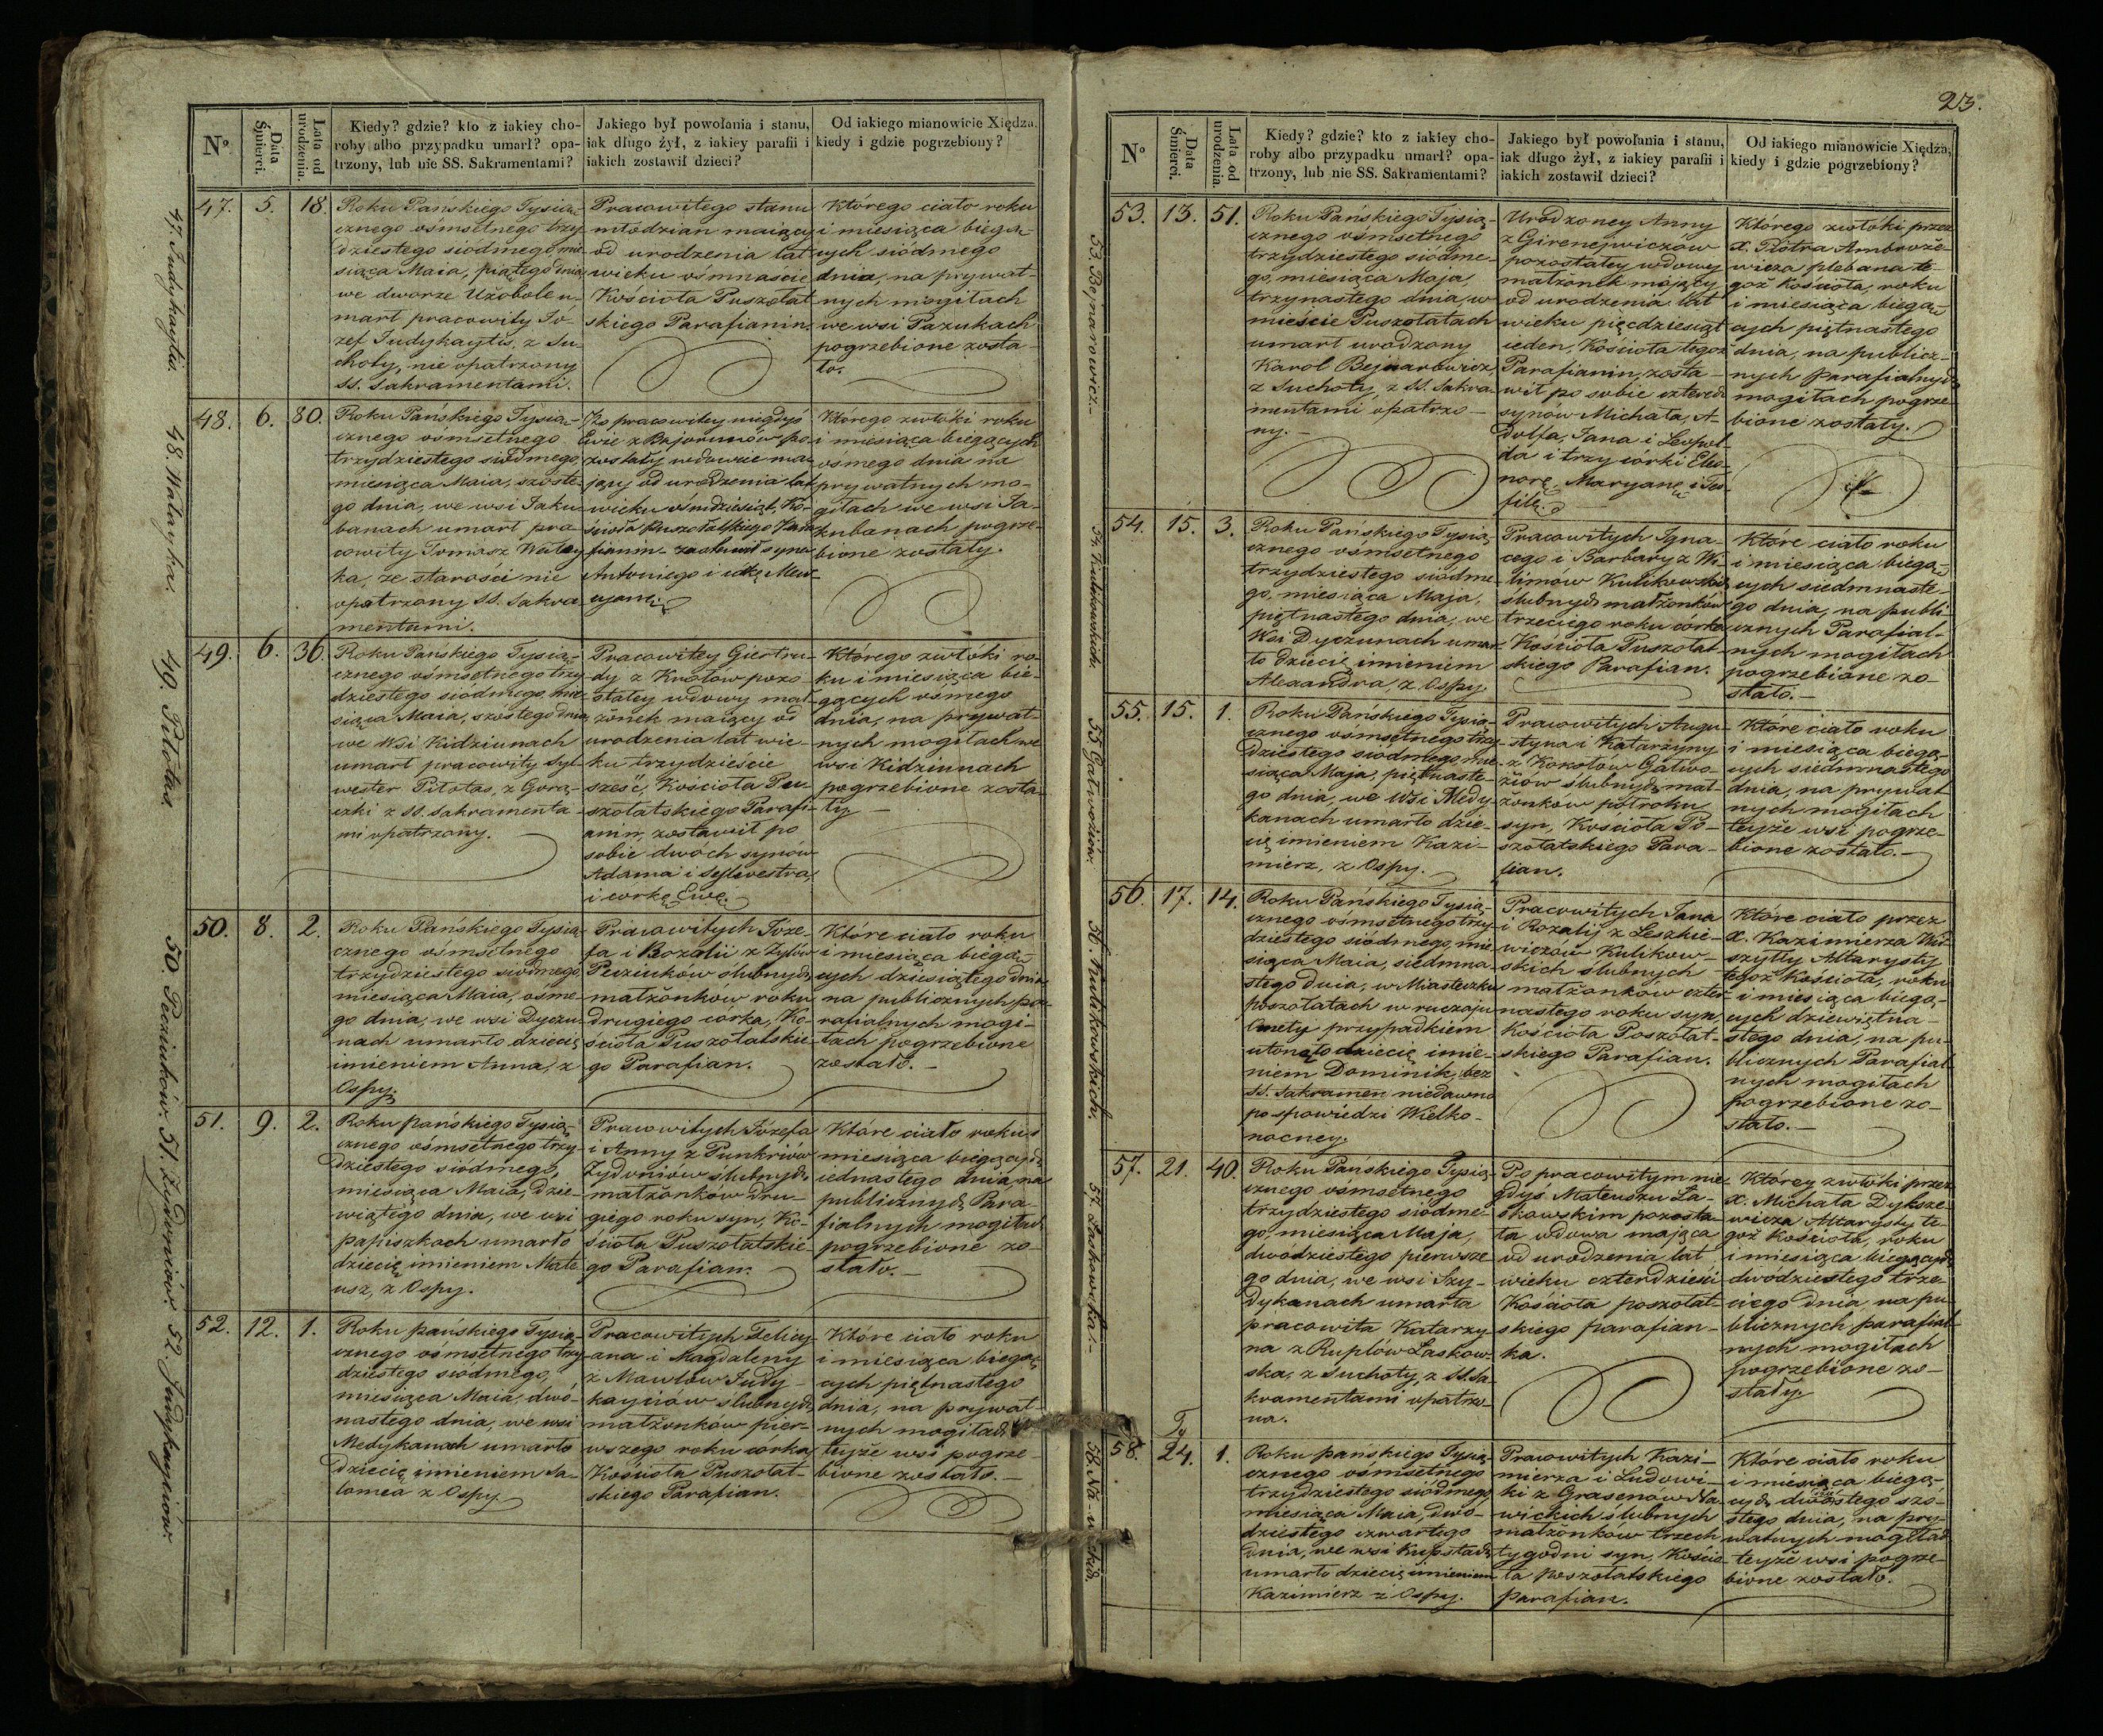 23.
Nº
Data Śmierci.
Lata od urodzenia.
Kiedy? gdzie? kto z iakiey cho-
roby albo przypadku umarł? opa-
trzony, lub nie SS. Sakramentami?
Jakiego był powołania i stanu,
iak długo żył, z iakiey parafii i
iakich zostawił dzieci?
Od iakiego mianowicie Xiędza,
kiedy i gdzie pogrzebiony?
47.
5.
18.
Roku Pańskiego Tysią-
cznego ośmsetnego trzy-
dziestego siódmego mie-
siąca Maia, piątego dnia
we dworze Użobole u-
mart pracowity Jo-
zef Judykaytis, z Su-
choty, nie opatrzony
SS. Sakramentami.
Pracowitego stanu
młodzian maiący
od urodzenia lat
wieku ośmnaście
Kościoła Puszołat
skiego Parafianin.
Którego ciało roku
i miesiąca biegą-
cych siódmego
dnia, na prywat-
nych mogiłach
we wsi Pazukach
pogrzebione zosta-
ło.
48.
6.
80.
Roku Pańskiego Tysią-
cznego ośmsetnego
trzydziestego siódmego,
miesiąca Maia, szóste-
go dnia, we wsi Jaku-
banach umarł pra-
cowity Tomasz Wałay
ka, ze starości nie
opatrzony SS. Sakra
mentami.
Po pracowitey niegdyś
Ewie z Bajorunów po-
zostały wdowiec ma-
jący od urodzenia lat
wieku ośmdziesiąt, Ko-
ścioła Puszołatskiego Para
fianin zostawił syna
Antoniego i
Którego zwłóki roku
i miesiąca biegących
ośmego dnia na
prywatnych mo-
giłach we wsi Ja-
kubanach pogrze-
bione zostały.
49.
6.
36.
Roku Pańskiego Tysią-
cznego ośmsetnego trzy
dziestego siódmego, mie-
siąca Maia, szóstego dnia,
we Wsi Kidziunach
umarł pracowity Syl-
wester Pitołas, z Gorą-
czki z SS. Sakramenta
mi opatrzony.
Pracowitey Giertru-
dy z Krolow pozo-
stałey wdowy mał-
żonek maiący od
urodzenia lat wie-
ku trzydzieście
sześć, Kościoła Pu-
szołatskiego Parafi-
anin, zostawił po
sobie dwóch synów
Adama i Sylwestra,
i corkę Ewę.
Którego zwłóki ro-
ku i miesiąca bie-
gących ośmego
dnia, na prywat-
nych mogiłach we
wsi Kidziunach
pogrzebione zosta-
ły
50.
8.
2.
Roku Pańskiego Tysią
cznego ośmsetnego
trzydziestego siódmego,
miesiąca Maia, ośme-
go dnia, we wsi Dyczu-
nach umarło dziecię
imieniem Anna, z
Ospy.
Pracowitych Józe-
fa i Rozalii z Zylów
Pecziuków ślubnych
małżonków roku
drugiego corka, Ko-
ścioła Puszołatskie-
go Parafian.
Które ciało roku
i miesiąca biegą-
cych dziesiątego dnia
na publicznych pa-
rafialnych mogi-
łach pogrzebione
zostało.
51.
9.
2.
Roku Pańskiego Tysią-
cznego ośmsetnego trzy-
dziestego siódmego,
miesiąca Maia, dzie-
wiątego dnia, we wsi
Papiszkach umarło
dziecię imieniem Mate
usz, z Ospy.
Pracowitych Józefa
i Anny z Punkrisów
Zydoniów ślubnych
małżonków dru-
giego roku syn, Ko-
ścioła Puszołatskie-
go Parafian.
Które ciało roku i
miesiąca biegących
iednastego dnia, na
publicznych Para-
fialnych mogiłach
pogrzebione zo-
stało.
52.
12.
1.
Roku pańskiego Tysią-
cznego ośmsetnego trzy
dziestego siódmego,
miesiąca Maia, dwó-
nastego dnia, we wsi
Medykanach umarło
dziecię imieniem Sa-
lomea z Ospy
Pracowitych Felicy-
ana i Magdaleny
z Mawlow Judy-
kayciów ślubnych
małżonków pier-
wszego roku córka
Kościoła Puszołat-
skiego Parafian.
Które ciało roku
i miesiąca biegą-
cych piętnastego
dnia, na prywat-
nych mogiłach
teyże wsi pogrze-
bione zostało.
47. Judykaytis
48. Wałayka.
49. Pitołas
50. Pecziuków.
51. Zydoniów.
52. Judykayciów
Nº
Data Śmierci.
Lata od urodzenia
Kiedy? gdzie? kto z iakiey cho-
roby albo przypadku umarł? opa-
trzony, lub nie SS. Sakramentami?
Jakiego był powołania i stanu,
iak długo żył, z iakiey parafii i
iakich zostawił dzieci?
Od iakiego mianowicie Xiędza,
kiedy i gdzie pogrzebiony?
53.
13.
51.
Roku Pańskiego Tysią-
cznego ośmsetnego
trzydziestego siódme-
go, miesiąca Maja,
trzynastego dnia, w
mieście Puszołatach
umarł urodzony
Karol Bejnarowicz,
z Suchoty, z SS. Sakra-
mentami opatrzo-
ny.
Urodzoney Anny
z Girenejwiczów
pozostałey wdowy
małżonek mający
od urodzenia lat
wieku pięcdziesiąt
ieden, Kościoła tegoż
Parafianin, zosta-
wił po sobie czterech
synów Michała, A-
dolfa, Jana i Leopol-
da i trzy córki Eleo-
norę, Maryanę i Teo-
filę.
Którego zwłóki przez
X. Piotra Ambroże-
wicza plebana te-
goż Kościoła, roku
i miesiąca biegą-
cych piętnastego
dnia, na publicz-
nych Parafialnych
mogiłach pogrze-
bione zostały.
54.
15.
3.
Roku Pańskiego Tysią-
cznego ośmsetnego
trzydziestego siódme-
go, miesiąca Maja,
piętnastego dnia, we
Wsi Dyczunach umar-
ło dziecię imieniem
Alexandra, z Ospy
Pracowitych Igna-
cego i Barbary z Wi-
limow Kulikowskich
ślubnych małżonków
trzeciego roku córka
Kościoła Puszołat-
skiego Parafian.
Które ciało roku
i miesiąca biegą-
cych siedmnaste-
go dnia, na publi
cznych Parafial-
nych mogiłach
pogrzebione zo-
stało.
55.
15.
1.
Roku Pańskiego Tysią-
cznego ośmsetnego trzy-
dziestego siódmego, mie-
siąca Maja, piętnaste-
go dnia, we Wsi Medy-
kanach umarło dzie-
cię imieniem Kazi-
mierz, z Ospy.
Pracowitych Augu-
styna i Katarzyny
z Kokotow Gatwo-
ziów ślubnych mał-
żonków półroku
syn, Kościoła Po-
szołatskiego Para-
fian.
Które ciało roku
i miesiąca biegą-
cych siedmnastego
dnia, na prywat
nych mogiłach
teyże wsi pogrze-
bione zostało.
56.
17.
14.
Roku Pańskiego Tysią-
cznego ośmsetnego trzy-
dziestego siódmego, mie-
siąca Maia, siedmna-
stego dnia, w Miasteczku
poszołatach w ruczaju
przypadkiem
utonęło dziecię imie-
niem Dominik, bez
SS. Sakramen niedawno
po spowiedzi Wielko-
nocney.
Pracowitych Jana
i Rozalij z Leszkie-
wiczów Kulikow-
skich ślubnych
małżonków czter-
nastego roku syn
Kościoła Poszołat-
skiego Parafian.
Które ciało przez
X. Kazimierza
Altarysty
tegoż Kościoła, roku
i miesiąca biegą-
cych dziewiętna-
stego dnia, na pu-
blicznych Parafial
nych mogiłach
pogrzebione zo-
stało.
57.
21.
40.
Roku Pańskiego Tysią-
cznego ośmsetnego
trzydziestego siódme-
go, miesiąca Maja,
dwódziestego pierwsze
go dnia, we wsi Szy-
dykanach umarła
pracowita Katarzy-
na z Ruplów Laskow-
ska, z Suchoty, z SS. Sa-
kramentami opatrzo-
na.
Po pracowitym nie-
gdyś Mateuszu La-
skowskim pozosta-
ła wdowa mająca
od urodzenia lat
wieku czterdzieści
Kościoła poszołat-
skiego parafian-
ka.
Którey zwłóki przez
X. Michała Dyksze-
wicza Altarysty te-
goż Kościoła, roku
i miesiąca biegących
dwódziestego trze-
ciego dnia, na pu-
blicznych parafial-
nych mogiłach
pogrzebione zo-
stały
58.
Ty
24.
1.
Roku pańskiego Tysią-
cznego ośmsetnego
trzydziestego siódmego,
miesiąca Maia, dwó-
dziestego czwartego
dnia, we wsi Kupstach
umarło dziecię imieniem
Kazimierz z Ospy.
Pracowitych Kazi-
mierza i Ludowi-
ki z Grasenów Na-
wickich ślubnych
małżonków trzech
tygodni syn, Kościo-
ła Poszołatskiego
parafian.
Które ciało roku
i miesiąca biegą-
cych stego szó-
stego dnia, na pry-
watnych mogiłach
teyże wsi pogrze-
bione zostało.
53. Bejnarowicz.
54. Kulikowskich
55. Gatwoziów
56. Kulikowskich.
57. Laskowska.
58. Na-wickich.